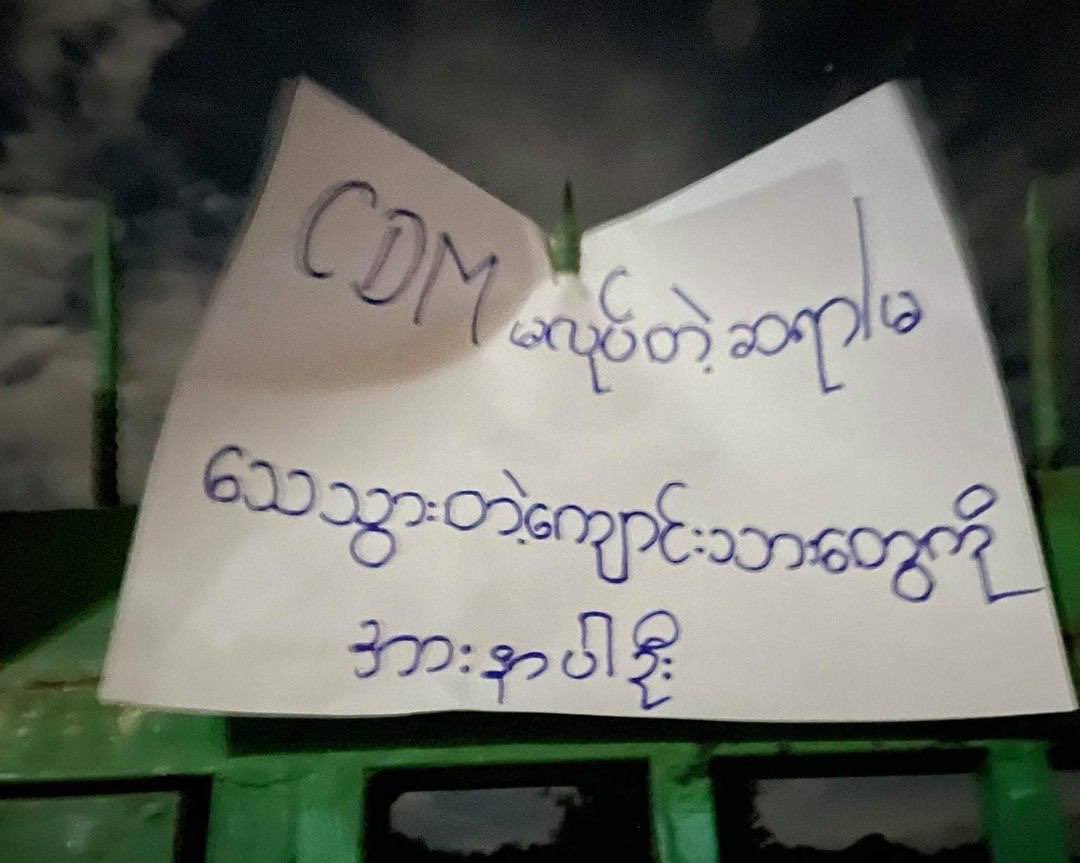 CDM မလုပ်တဲ့ ဆရာ/မ
သေသွားတဲ့ကျောင်းသားတွေကို
အားနာပါဦး